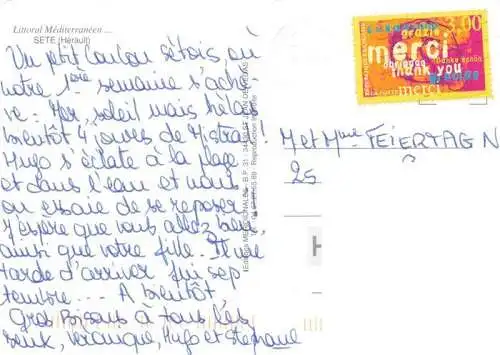 Littoral Méditerranéen ...
SETE (Hérault)
Un ptit coucou sétois, où
notre 1ère semaine s'achè
ve : Mer, soleil mais hélas
bientôt 4 jours de Mistral !
Hugo s'éclate à la plage
et dans l'eau et nous
on essaie de se reposer.
J'espère que vous allez bien,
ainsi que votre fille. Il me
tarde d'arriver fin sep
tembre... A bientôt,
Gros Bisous à tous les
deux, Véronique, Hugo et Stéphane
3,00
grazie
merci
Danke schön
thank you
merci
M et Mme FEIERTAG N
25